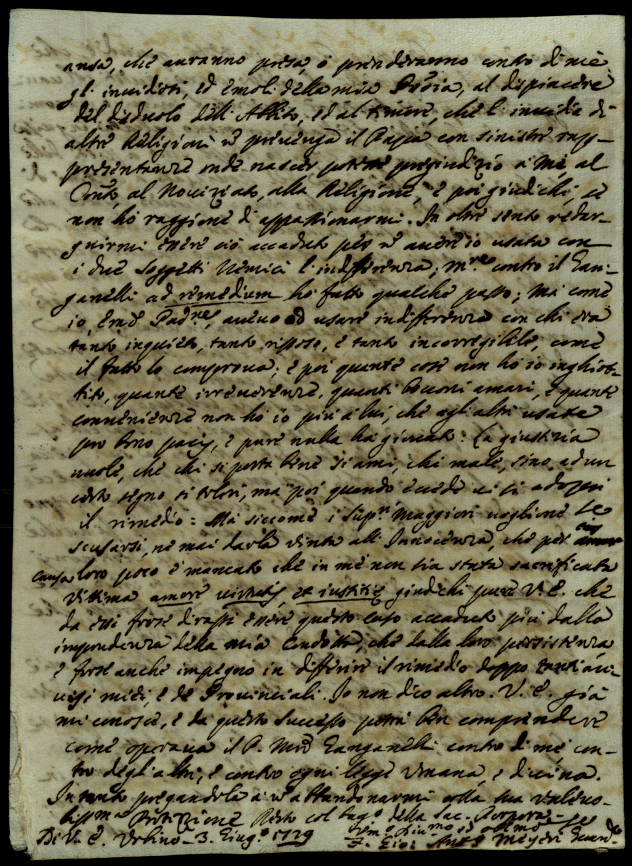 ansa, che auranno presa, ò prenderanno contro di me
gl'inuidiosi, ed emoli della mia Proūia, al dispiacere
del disduolo dell'Abito, ed al timore, che l'inuidia di
altre Religioni nō preuenga il Papa con sinistre rap-
presentanze onde nascer potesse pregiudizio a me, al
Conūto, al Nouiziato, alla Religione, e poi giudichi, se
non hò raggione di appassionarmi. In oltre sento redar-
guirmi essere ciò accaduto per nō auere io usata con
i due soggetti nemici l'indifferenza, mre contro il Gan-
ganelli ad remedium ho fatto qualche passo; ma come
io, Emō Padrne, aueuo ad usare indifferenza con chi era
tanto inquieto, tanto risoso, e tanto incorregibile, come
il fatto lo comproua; e poi quante cose non ho io inghiot-
tito, quante irreuerenze, quanti bocconi amari, e quante
conuenienze non ho io più a lui, che agli altri usate
pro bono pacis, e pure nulla ha giouato: La giustizia
uuole, che chi si porta bene si ami, chi male, sino ad un
certo segno si tolleri, ma poi quando eccede ui si adopri
il rimedio: Ma siccome i Supri Maggiori uogliono se
scusarsi, ne mai darla uinta all'Innocenza, che per
causa loro poco è mancato che in me non sia stata sacrificata
uittima amore uirtutis et iustitię giudichi pure V. E. che
da essi forse dirassi essere questo caso accaduto più dalla
imprudenza della mia condotta, che dalla loro persistenza
e forse anche impegno in differire il rimedio doppo tanti au-
uisi miei, e de Prouinciali. Io non dico altro. V. E. già
mi conosce, e da questo successo potrà ben comprendere
come operaua il P. Mrō Ganganelli contro di me, con-
tro degli altri, e contro ogni legge umana, e diuina.
Intanto pregandola a nō abbandonarmi colla sua ualeuo-
lissma Protezione Resto col bagō della Sac. Porpora
Di V. E. Urbino 3. Giugō 1729